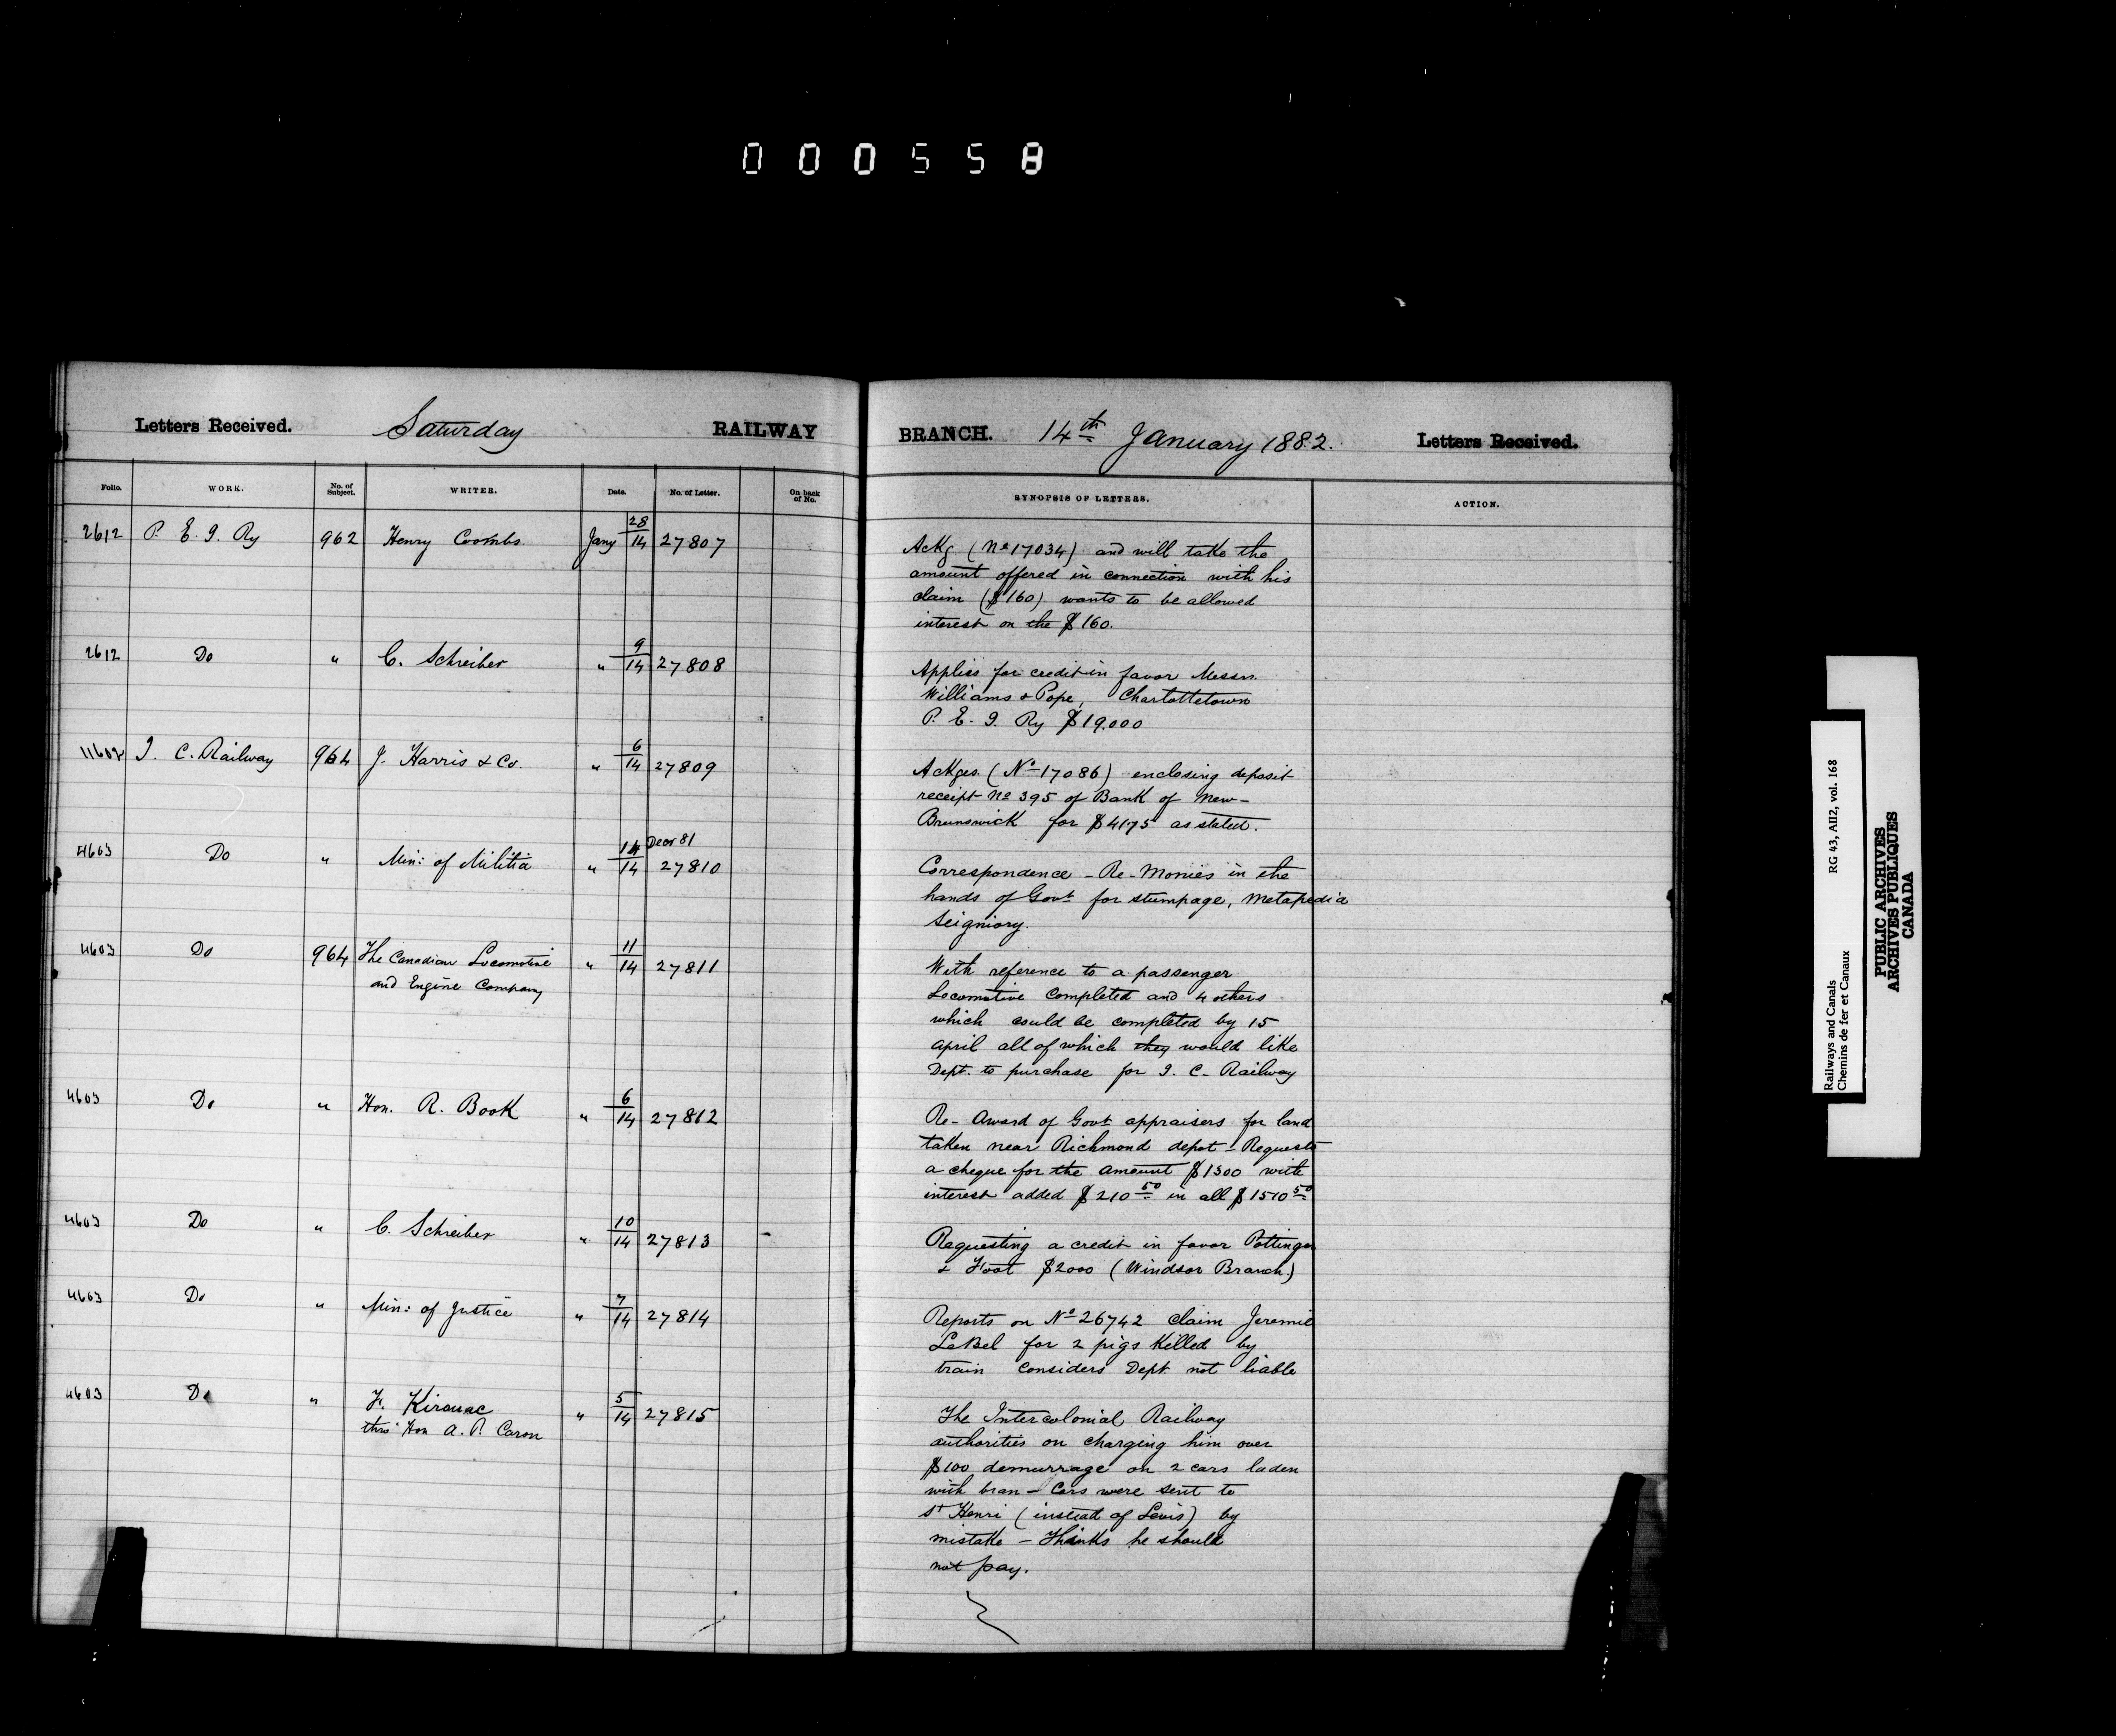 000558
Letters Received. Saturday RAILWAY BRANCH. 14th January 1882. Letters Received.
Folio. WORK. No. of Subject. WRITER. Date. No. of Letter. On back of No. SYNOPSIS OF LETTERS. ACTION.
2612 P. E. I. Ry 962 Henry Coombs Jany 28/14 27807
Ackg (No 17034) and will take the
amount offered in connection with his
claim ($160) wants to be allowed
interest on the $160.
2612 Do " C. Schreiber " 9/14 27808
Applies for credit in favor Messrs.
Williams & Pope, Charlottetown
P. E. I. Ry $19.000
I. C. Railway 964 J. Harris & Co. " 6/14 27809
Ackges. (No 17086) enclosing deposit
receipt No 395 of Bank of New-
Brunswick for $4175 as stated.
4603 Do " Min: of Militia " 14/14 Decr 81 27810
Correspondence - Re - Monies in the
hands of Govt for stumpage, Metapedia
Seigniory.
4603 Do 964 The Canadian Locomotive
and Engine Company " 11/14 27811
With reference to a passenger
Locomotive completed and 4 others
which could be completed by 15
April all of which they would like
Dept. to purchase for I. C. Railway
4603 Do " Hon. R. Book " 6/14 27812
Re - Award of Govt appraisers for land
taken near Richmond depot - Requests
a cheque for the amount $1300 with
interest added $210 50 in all $1510 50
4603 Do " C. Schreiber " 10/14 27813 -
Requesting a credit in favor Pottinger
& Foot $2000 (Windsor Branch.)
4603 Do " Min: of Justice " 7/14 27814
Reports on No 26742 claim Jeremie
LeBel for 2 pigs killed by
train considers Dept. not liable
4603 Do " F. Kirouac
thro' Hon A. P. Caron " 5/14 27815
The Intercolonial Railway
authorities on charging him over
$100 demurrage on 2 cars laden
with bran - Cars were sent to
St Henri (instead of Levis) by
mistake - Thinks he should
not pay.
Railways and Canals RG 43, AII2, vol. 168
Chemins de fer et Canaux
PUBLIC ARCHIVES
ARCHIVES PUBLIQUES
CANADA